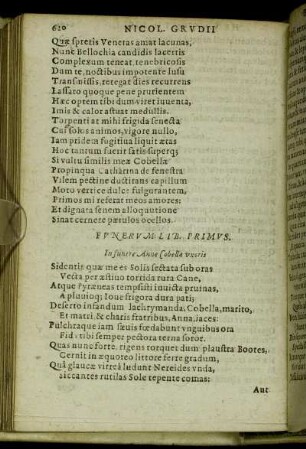 620 NICOL. GRVDII
Quæ spretis Veneras amat lacunas,
Nunc Bellochia candidis lacertis
Complexum teneat, tenebricosis
Dum te, noctibus impotente lusu
Transmissis, retegat dies recurrens
Lassato quoque pene prurientem
Hæc optem tibi dum viret iuuenta,
Imis & calor æstuat medullis.
Torpenti at mihi frigida senecta
Cui solos animos, vigore nullo,
Iam pridem fugitiua liquit ætas
Hoc tantum fuerit satis superq;
Si vultu similis meæ Cobellæ
Propinqua Catharina de fenestra
Vdam pectine ductitans capillum
Motu vertice dulce fulgurantem,
Primos mi referat meos amores:
Et dignata senem alloquutione
Sinat cernere pætulos ocellos.
FVNERVM LIB. PRIMVS.
In funere Annæ Cobellæ vxoris
Sidentis quæ me et Solis sectata sub oras
Vecta per æstiuo torrida rura Cane,
Atque Pyræneas tempesti inuicta pruinas,
A pluuioq; Ioue frigora dura pati;
Desero infandum lachrymanda, Cobella, marito,
Et matri, & charis fratribus, Anna, iaces:
Pulchraque iam sæuis fœdabunt vnguibus ora
Fid vtibi semper pectora terna soror.
Quas nunc forte, rigens torquet dum plaustra Bootes,
Cernit in æquoreo littore ferre gradum,
Quâ glaucæ vitreâ ludunt Nereides vnda,
siccantes rutilas Sole tepente comas:
Aut